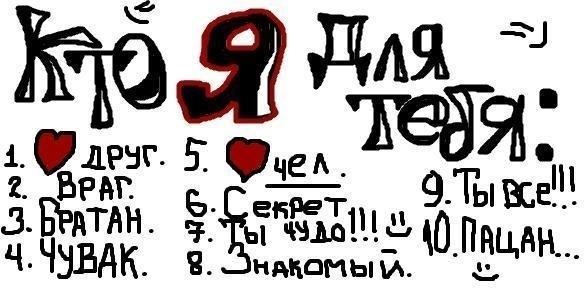 Кто Я для тебя:
=)
1. ❤ друг.
2. Враг.
3. Братан.
4. Чувак.
5. ❤ чел.
6. Секрет
7. Ты чудо!!! :)
8. Знакомый.
9. Ты все!!!
10. Пацан...
:)